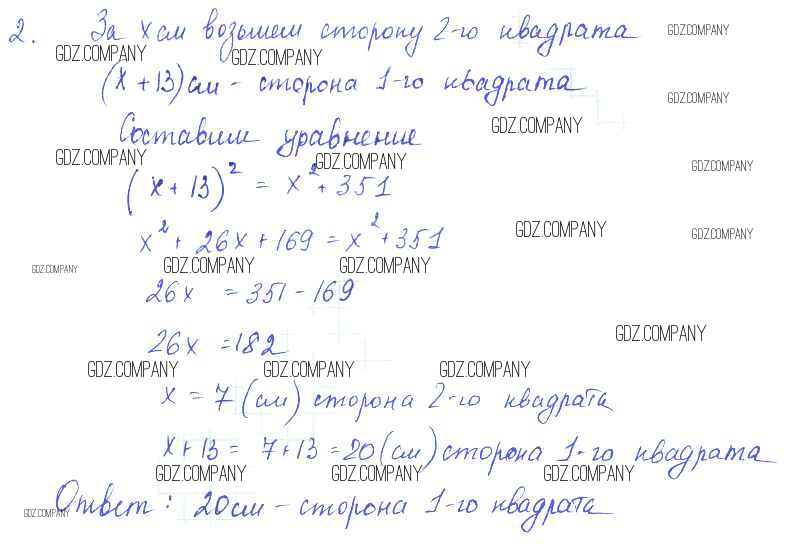 2. За x см возьмем сторону 2-го квадрата GDZ.COMPANY
GDZ.COMPANY GDZ.COMPANY
(x + 13) см - сторона 1-го квадрата GDZ.COMPANY
Составим уравнение GDZ.COMPANY
GDZ.COMPANY GDZ.COMPANY GDZ.COMPANY
(x + 13)² = x² + 351
x² + 26x + 169 = x² + 351 GDZ.COMPANY GDZ.COMPANY
GDZ.COMPANY GDZ.COMPANY GDZ.COMPANY
26x = 351 - 169
GDZ.COMPANY
26x = 182
GDZ.COMPANY GDZ.COMPANY GDZ.COMPANY
x = 7 (см) сторона 2-го квадрата
x + 13 = 7 + 13 = 20 (см) сторона 1-го квадрата
GDZ.COMPANY GDZ.COMPANY GDZ.COMPANY
Ответ: 20 см - сторона 1-го квадрата
GDZ.COMPANY